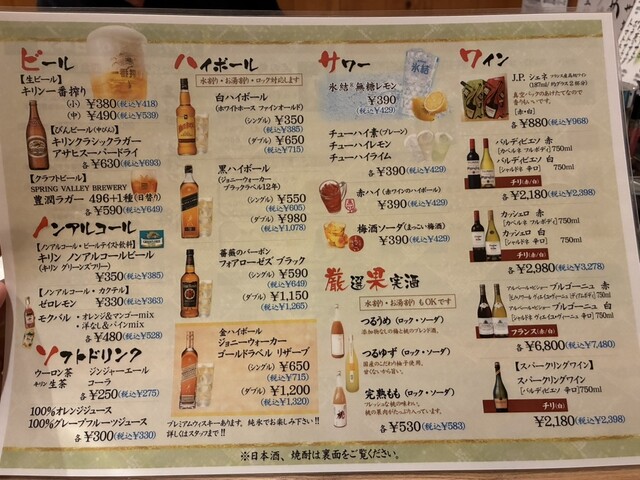 ビール
【生ビール】
キリン一番搾り
(小) ￥380(税込￥418)
(中) ￥490(税込￥539)
【びんビール(中びん)】
キリンクラシックラガー
アサヒスーパードライ
各￥630(税込￥693)
【クラフトビール】
SPRING VALLEY BREWERY
豊潤ラガー 496+1種(日替り)
各￥590(税込￥649)
ノンアルコール
【ノンアルコール・ビールテイスト飲料】
キリン ノンアルコールビール
(キリン グリーンズフリー)
￥350(税込￥385)
【ノンアルコール・カクテル】
ゼロレモン ￥330(税込￥363)
モクバル ・オレンジ&マンゴーmix
・洋なし&パインmix
各￥480(税込￥528)
ソフトドリンク
ウーロン茶 ジンジャーエール
キリン 生茶 コーラ
各￥250(税込￥275)
100%オレンジジュース
100%グレープフルーツジュース
各￥300(税込￥330)
ハイボール
水割り・お湯割り・ロック対応します
白ハイボール
(ホワイトホース ファインオールド)
(シングル) ￥350
(税込￥385)
(ダブル) ￥650
(税込￥715)
黒ハイボール
(ジョニーウォーカー
ブラックラベル12年)
(シングル) ￥550
(税込￥605)
(ダブル) ￥980
(税込￥1,078)
薔薇のバーボン
フォアローゼズ ブラック
(シングル) ￥590
(税込￥649)
(ダブル) ￥1,150
(税込￥1,265)
金ハイボール
ジョニーウォーカー
ゴールドラベル リザーブ
(シングル) ￥650
(税込￥715)
(ダブル) ￥1,200
(税込￥1,320)
プレミアムウィスキーあります。純氷でお楽しみ下さい!!
詳しくはスタッフまで!!
サワー
氷結®無糖レモン
￥390
(税込￥429)
チューハイ素(プレーン)
チューハイレモン
チューハイライム
各￥390(税込￥429)
赤ハイ(赤ワインのハイボール)
￥390(税込￥429)
梅酒ソーダ(まっこい梅酒)
￥390(税込￥429)
厳選果実酒
水割り・お湯割りもOKです
つるうめ(ロック・ソーダ)
添加物なしの梅と桃のブレンド酒。
つるゆず(ロック・ソーダ)
国産のこだわった柚子使用。
甘くないから旨い。
完熟もも(ロック・ソーダ)
フレッシュな桃の味わい。
桃の果肉がたっぷり入っています。
各￥530(税込￥583)
ワイン
J.P. シェネ(フランス産高級ワイン)
(187ml/約グラス2杯分)
真空パックのあけたてなので
香りもいいです。
【赤・白】
各￥880(税込￥968)
バルディビエソ 赤
[カベルネ フルボディ]750ml
バルディビエソ 白
[シャルドネ 辛口]750ml
チリ(赤/白)
各￥2,180(税込￥2,398)
カッシェロ 赤
[カベルネ フルボディ]750ml
カッシェロ 白
[シャルドネ 辛口]750ml
チリ(赤/白)
各￥2,980(税込￥3,278)
ブルゴーニュ 赤
750ml
ブルゴーニュ 白
750ml
フランス(赤/白)
各￥6,800(税込￥7,480)
【スパークリングワイン】
スパークリングワイン
[バルディビエソ 辛口]750ml
チリ(白)
￥2,180(税込￥2,398)
※日本酒、焼酎は裏面をご覧ください。